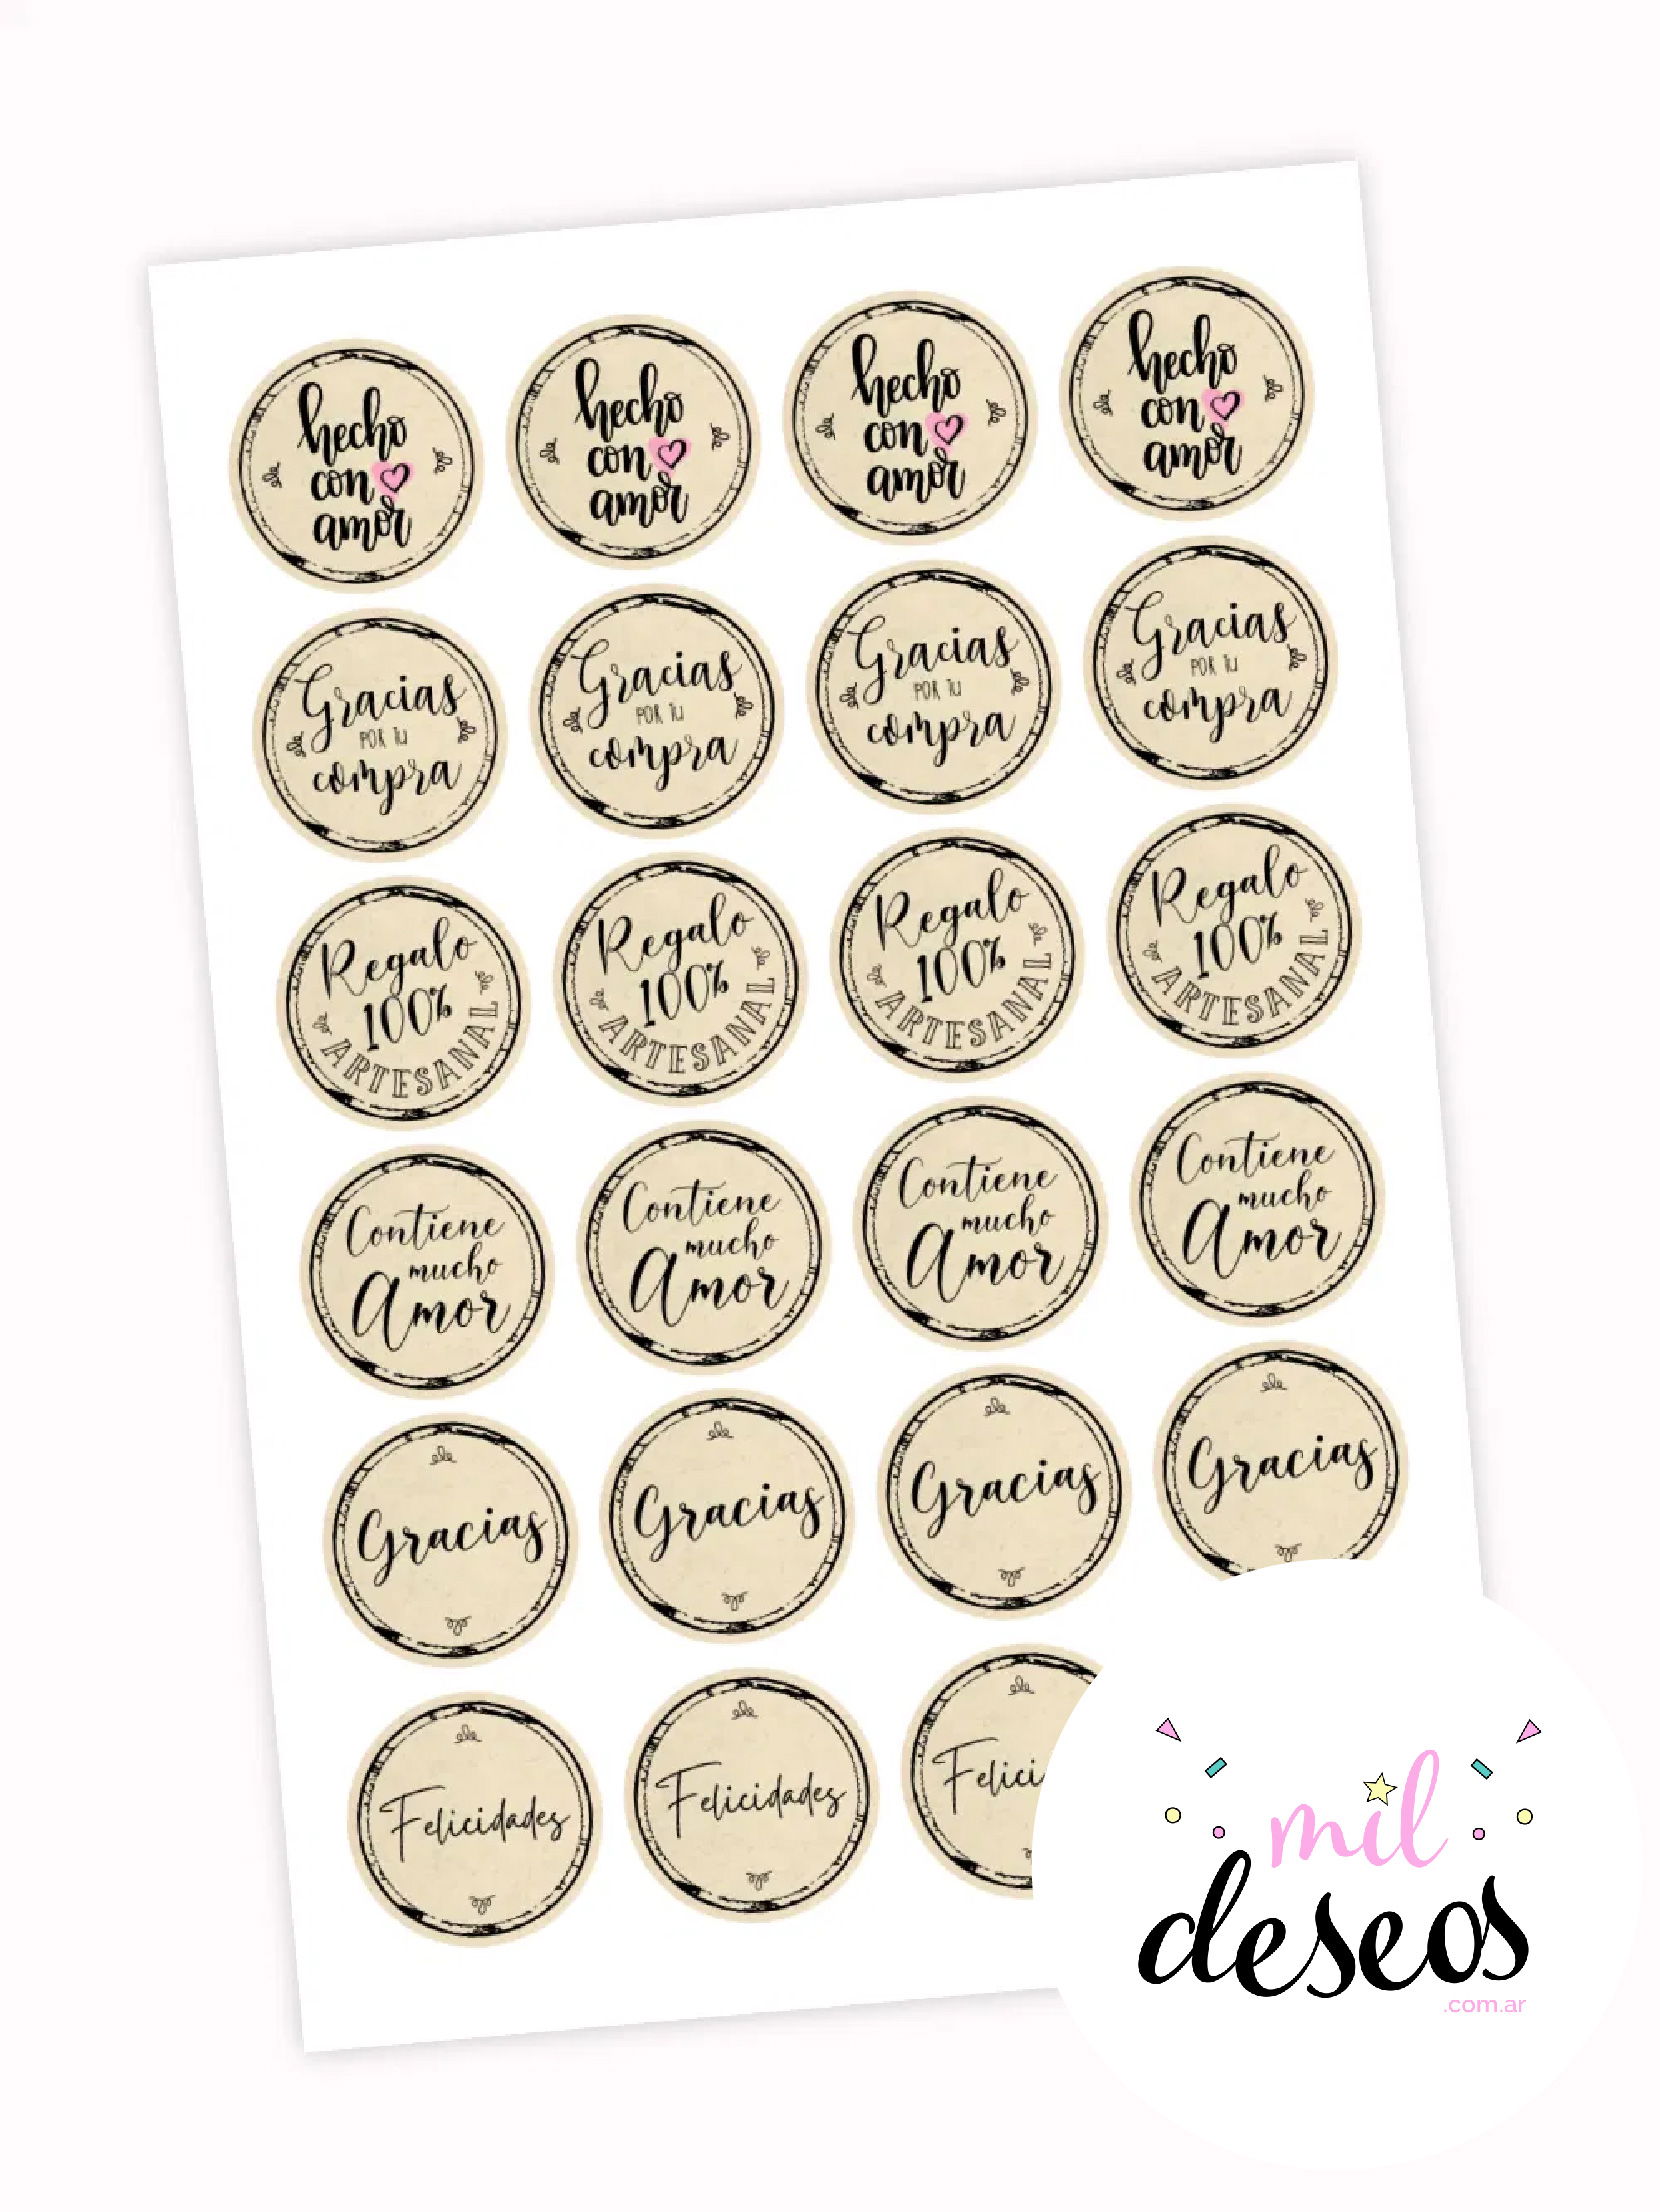 hecho
con
amor
hecho
con
amor
hecho
con
amor
hecho
con
amor
Gracias
POR TU
compra
Gracias
POR TU
compra
Gracias
POR TU
compra
Gracias
POR TU
compra
Regalo
100%
ARTESANAL
Regalo
100%
ARTESANAL
Regalo
100%
ARTESANAL
Regalo
100%
ARTESANAL
Contiene
mucho
Amor
Contiene
mucho
Amor
Contiene
mucho
Amor
Contiene
mucho
Amor
Gracias
Gracias
Gracias
Gracias
Felicidades
Felicidades
Felici
mil
deseos
.com.ar